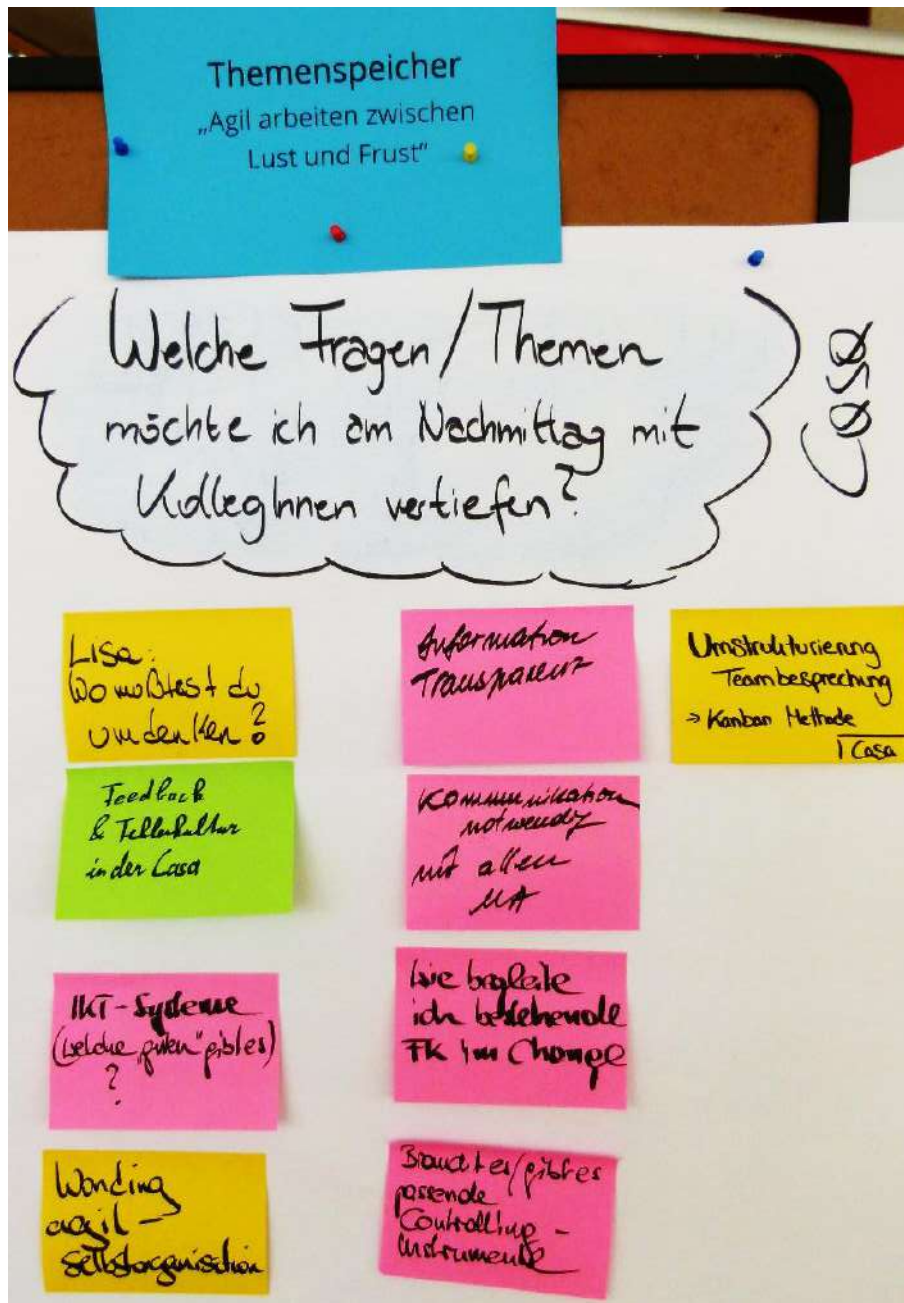 Themenspeicher
„Agil arbeiten zwischen
Lust und Frust“
Welche Fragen/Themen
möchte ich am Nachmittag mit
KollegInnen vertiefen?
casa
Lisa:
Wo mußtest du
umdenken?
Feedback
& Fehlerkultur
in der Casa
IKT-Systeme
(welche „guten“ gibt es)
?
Wording
agil -
selbstorganisation
Information
Transparenz
Kommunikation
notwendig
mit allen
MA
Wie begleite
ich bestehende
FK im Change
Braucht es/gibt es
passende
Controlling -
Instrumente
Umstrukturierung
Teambesprechung
→ Kanban Methode
Casa